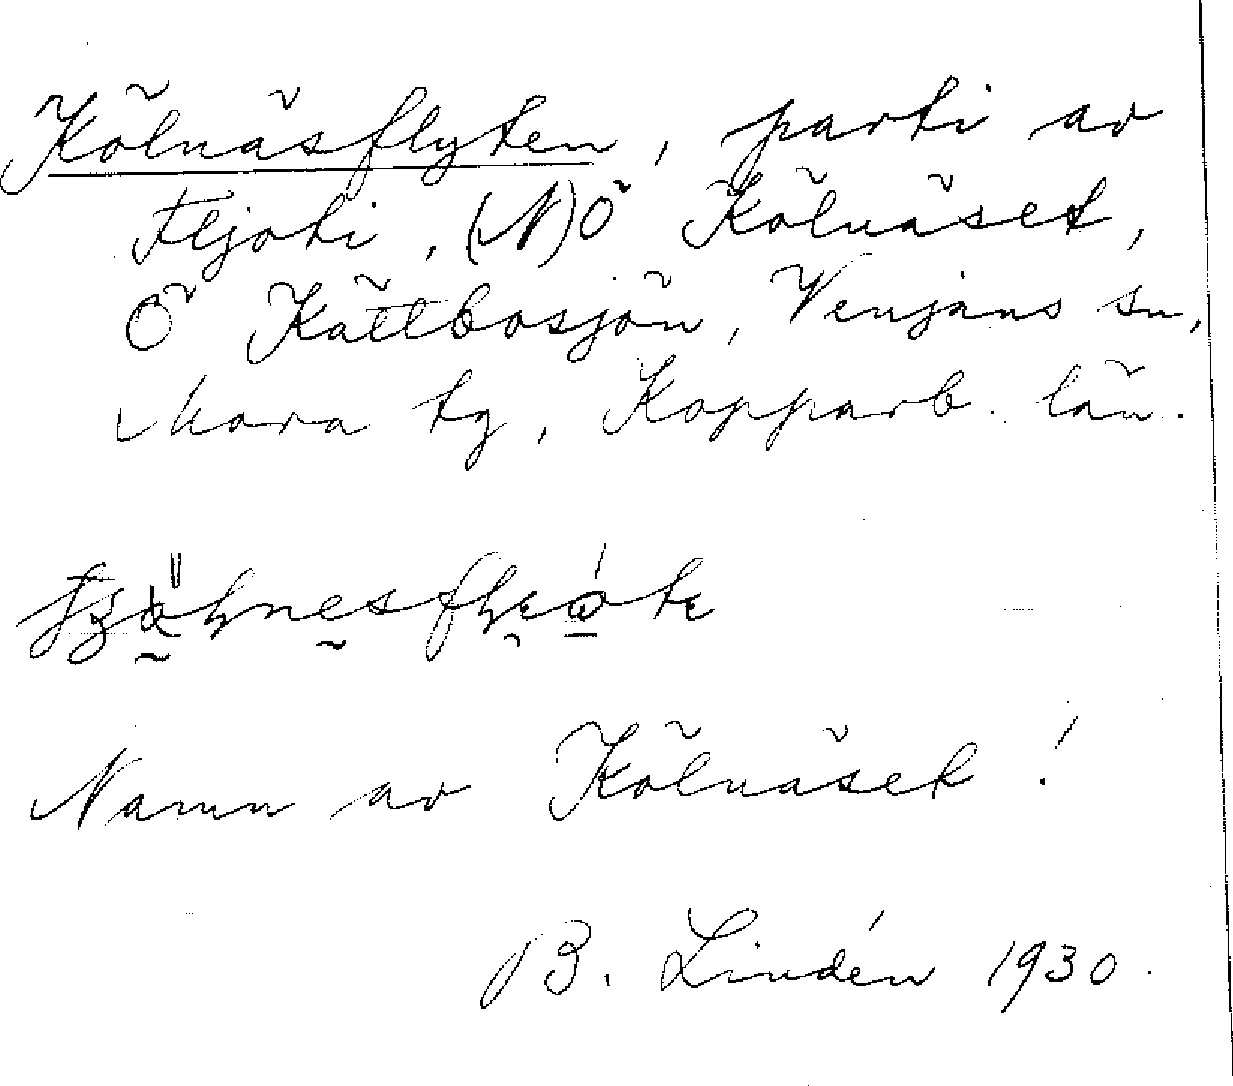 Kölnäsflyten, parti av
Fljoti, (N)Ö Kölnäset,
Ö Kättbosjön, Venjans sn,
Mora tg, Kopparb. län.
Namn av Kölnäset!
B. Lindén 1930.